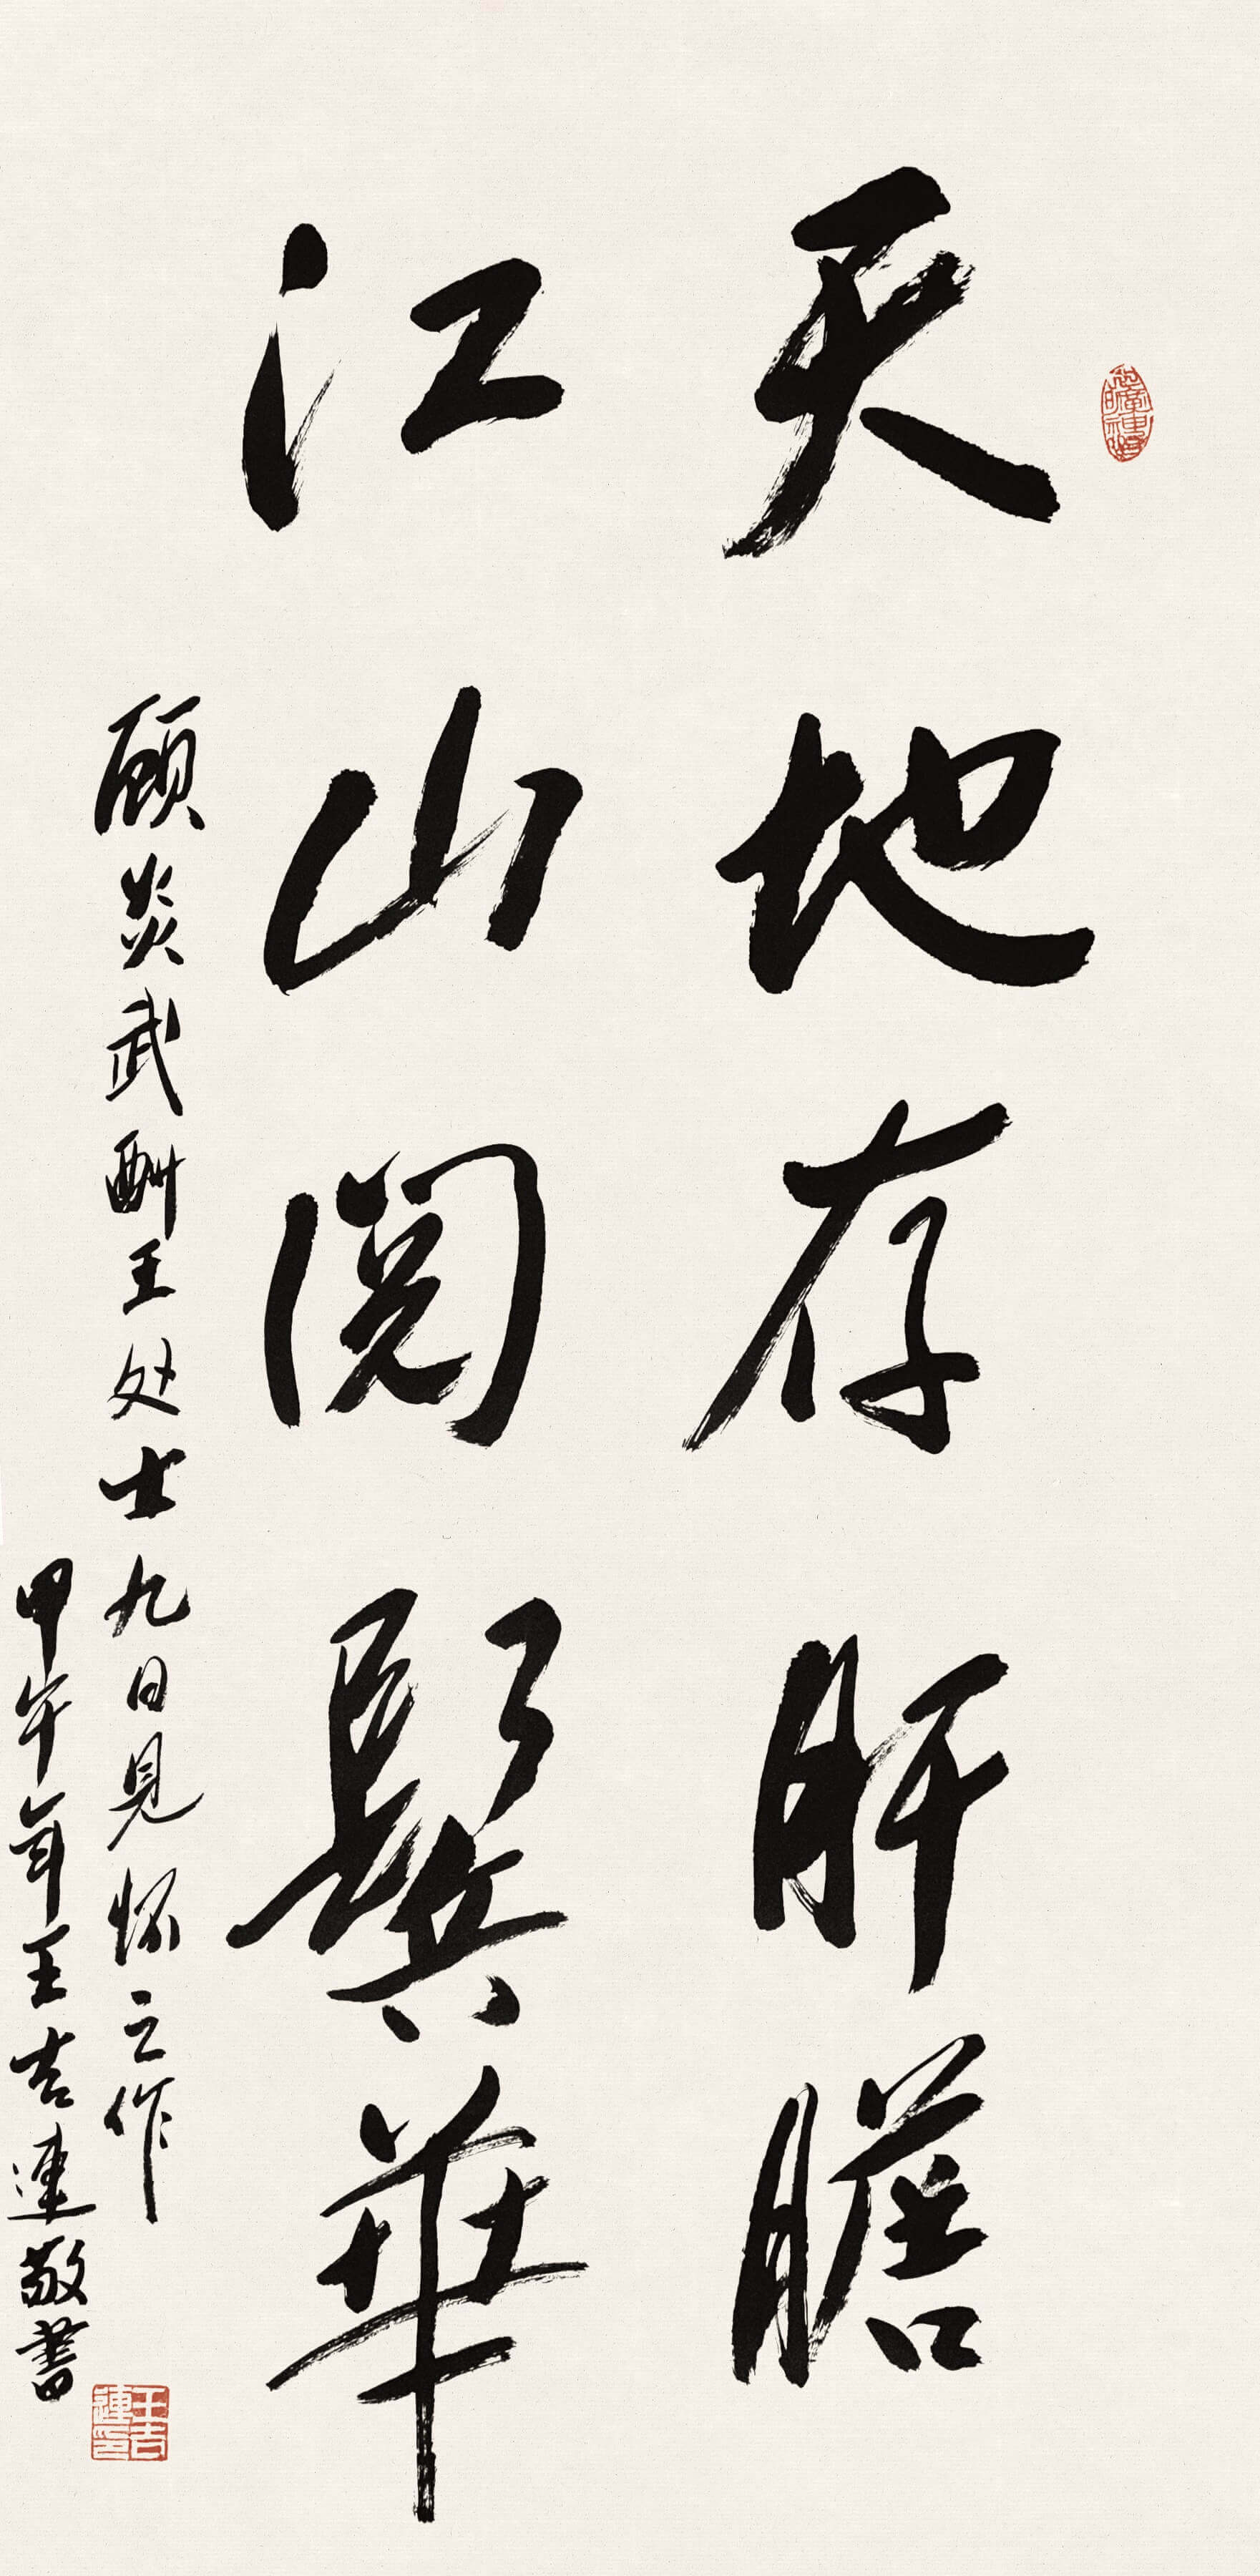 天地存肝膽
江山閲鬓華
顾炎武酬王处士九日見怀之作
甲午年王吉連敬書
王吉連印